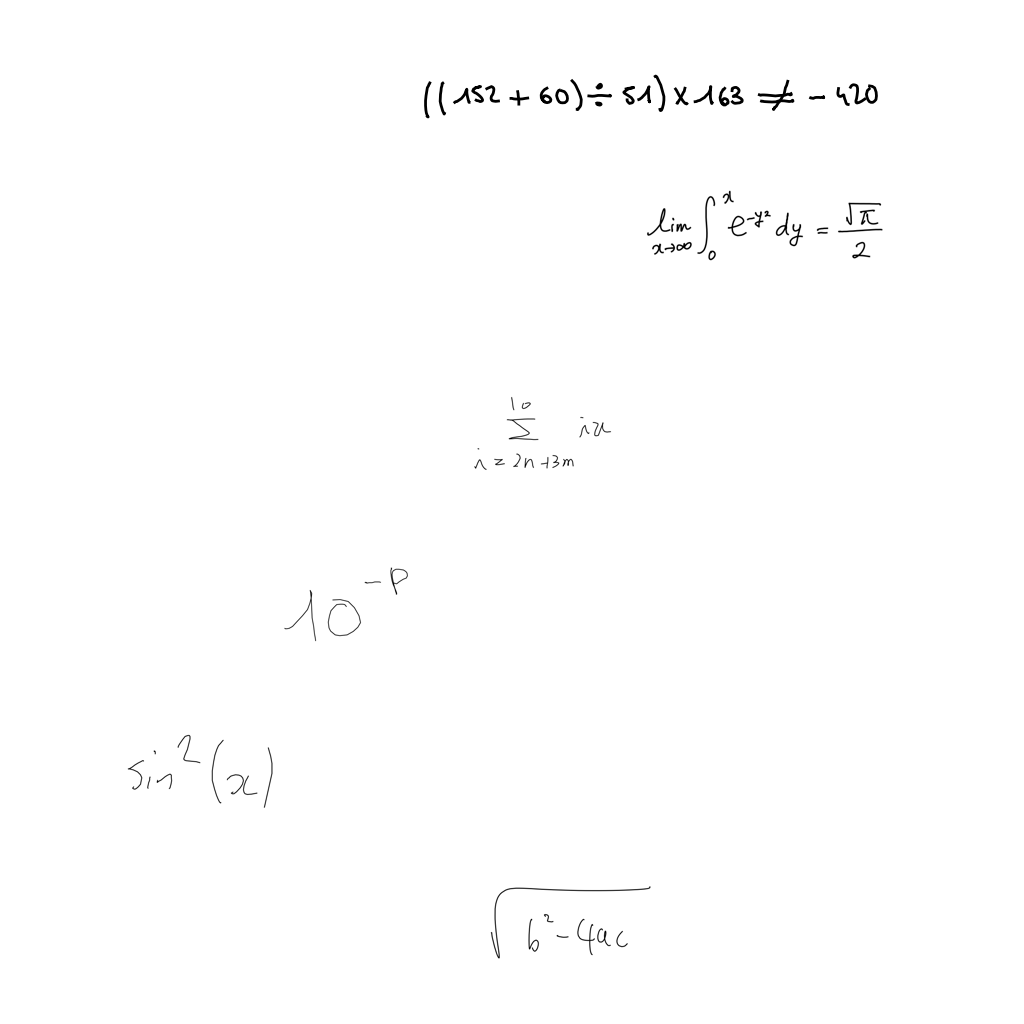 ((152 + 60) ÷ 51) × 163 ≠ - 420
\lim_{x \to \infty} \int_0^x e^{-y^2} dy = \frac{\sqrt{\pi}}{2}
\sum_{i=2n+3m}^{10} ix
10^{-p}
\sin^2(x)
\sqrt{b^2-4ac}